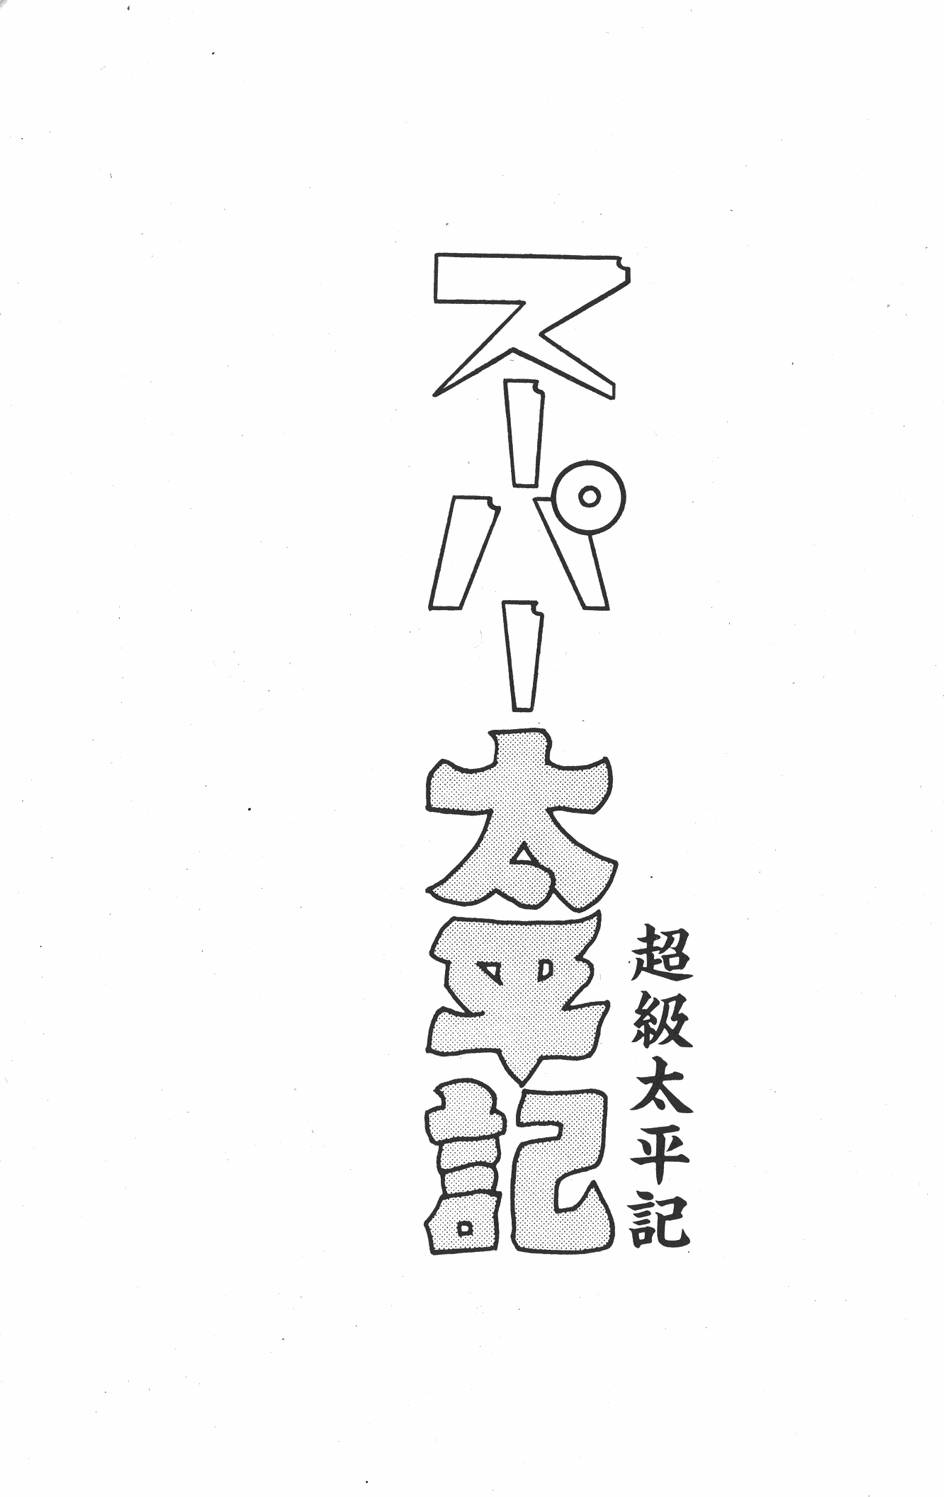 スーパー太平記
超級太平記